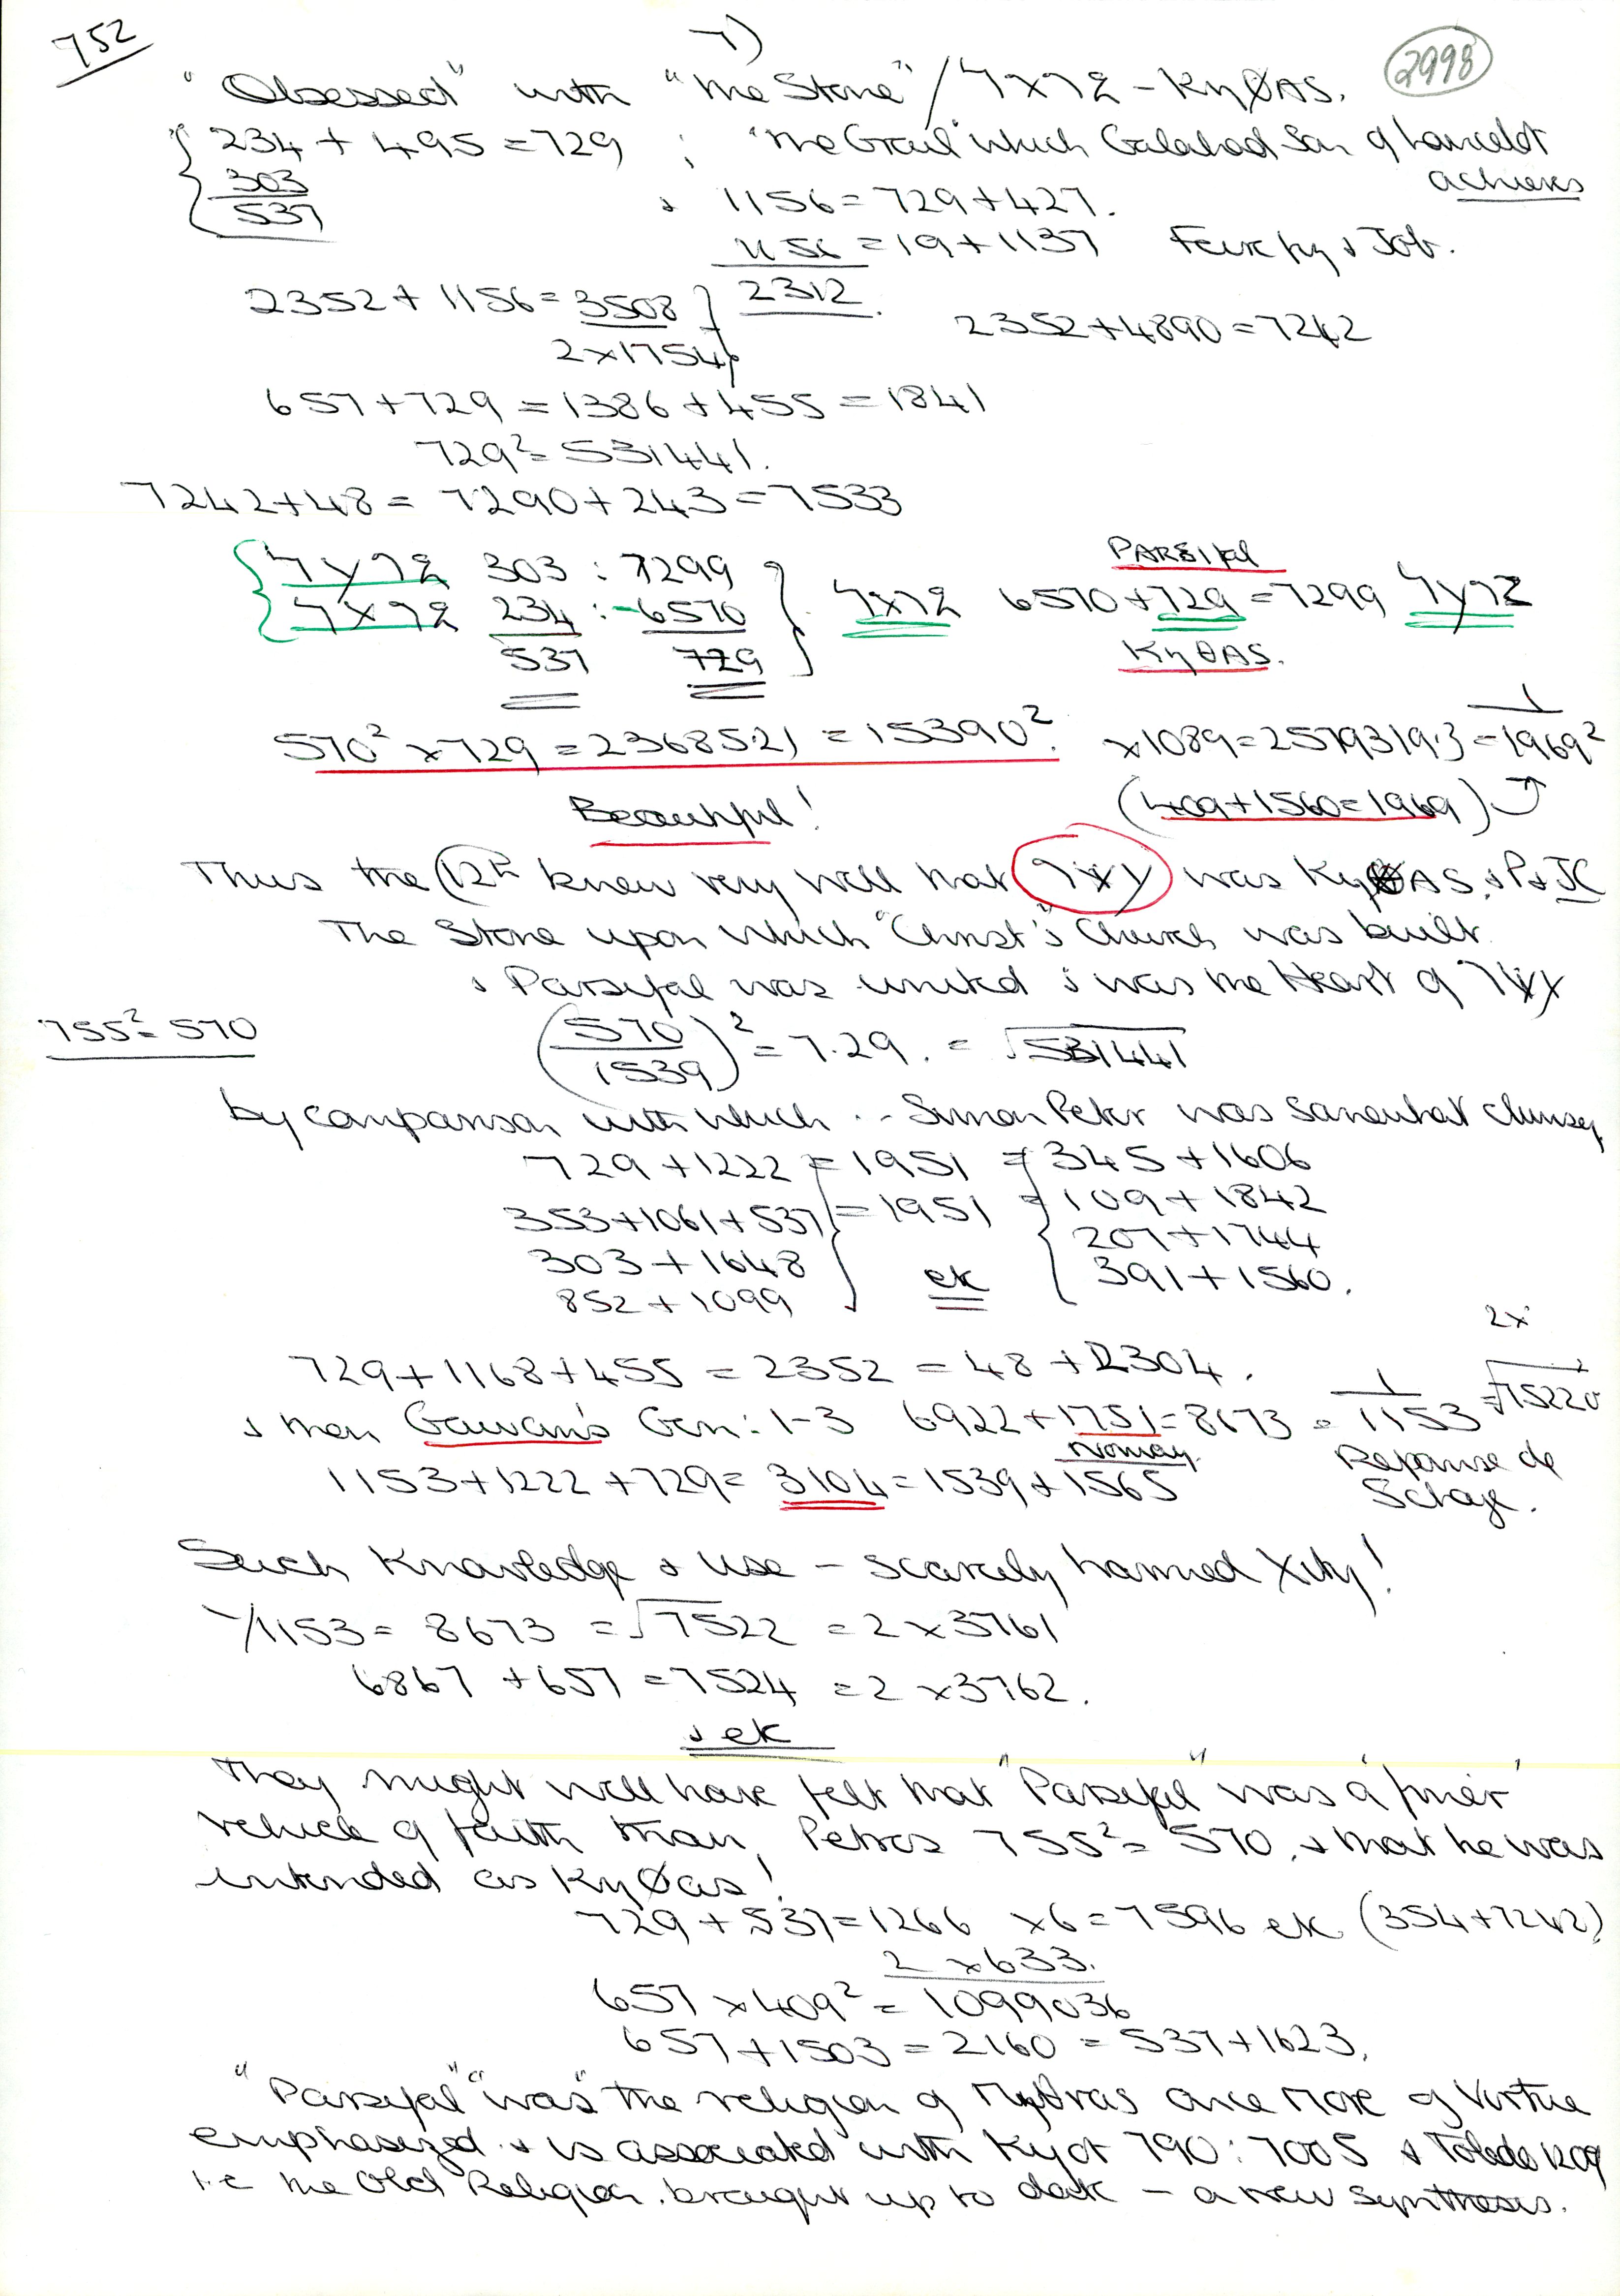 752
7)
2998
"Obsessed" with "the Stone" / 7x72 - KηØAS.
234 + 495 = 729 ; "The Grail" which Galahad Son of Lancelot
achieves
303
537
& 1156 = 729 + 427.
1156 = 19 + 1137 & Job.
2312
2352 + 1156 = 3508
2 x 1754
2352 + 4890 = 7242
657 + 729 = 1386 + 455 = 1841
729² = 531441.
7242 + 48 = 7290 + 243 = 7533
303 : 7299
234 : -6570
537 729
PARSifal
6570 + 729 = 7299
KηθAS.
570² x 729 = 236852.1 = 15390². x 1089 = 25793193 = 1969²
1
(409 + 1560 = 1969)
Beautiful!
Thus the 12th knew very well that was KηθAS. & P & JC
The Stone upon which "Christ's" Church was built
& Parsifal was united & was the Heart of
755² = 570
(570/1539)² = 7.29. = √531441
by comparison with which .. - Simon Peter was somewhat clumsy
729 + 1222 = 1951 = 345 + 1606
353 + 1061 + 537 = 1951 = 109 + 1842
303 + 1648 207 + 1744
852 + 1099 etc 391 + 1560.
729 + 1168 + 455 = 2352 = 48 + 2304.
2x
& then Gawain's Gen: 1-3 6922 + 1751 = 8673 = 1/1153 = √75220
Repanse de
Schoye.
1153 + 1222 + 729 = 3104 = 1539 + 1565
Such Knowledge & Use - scarcely harmed Xity!
1/1153 = 8673 = √7522 = 2 x 3761
6867 + 657 = 7524 = 2 x 3762.
& etc
They might well have felt that "Parsifal" was a 'finer'
vehicle of faith than, Petros 755² = 570. & that he was
intended as KηØas!
729 + 537 = 1266 x 6 = 7596 etc (354 + 7242)
2 x 633.
657 x 409² = 1099036
657 + 1503 = 2160 = 537 + 1623.
"Parsifal" "was" the religion of Mythras once more of Virtue
emphasized & is associated with Kyot 790 : 7005 & Toledo 1209
i.e the Old Religion. brought up to date - a new synthesis.